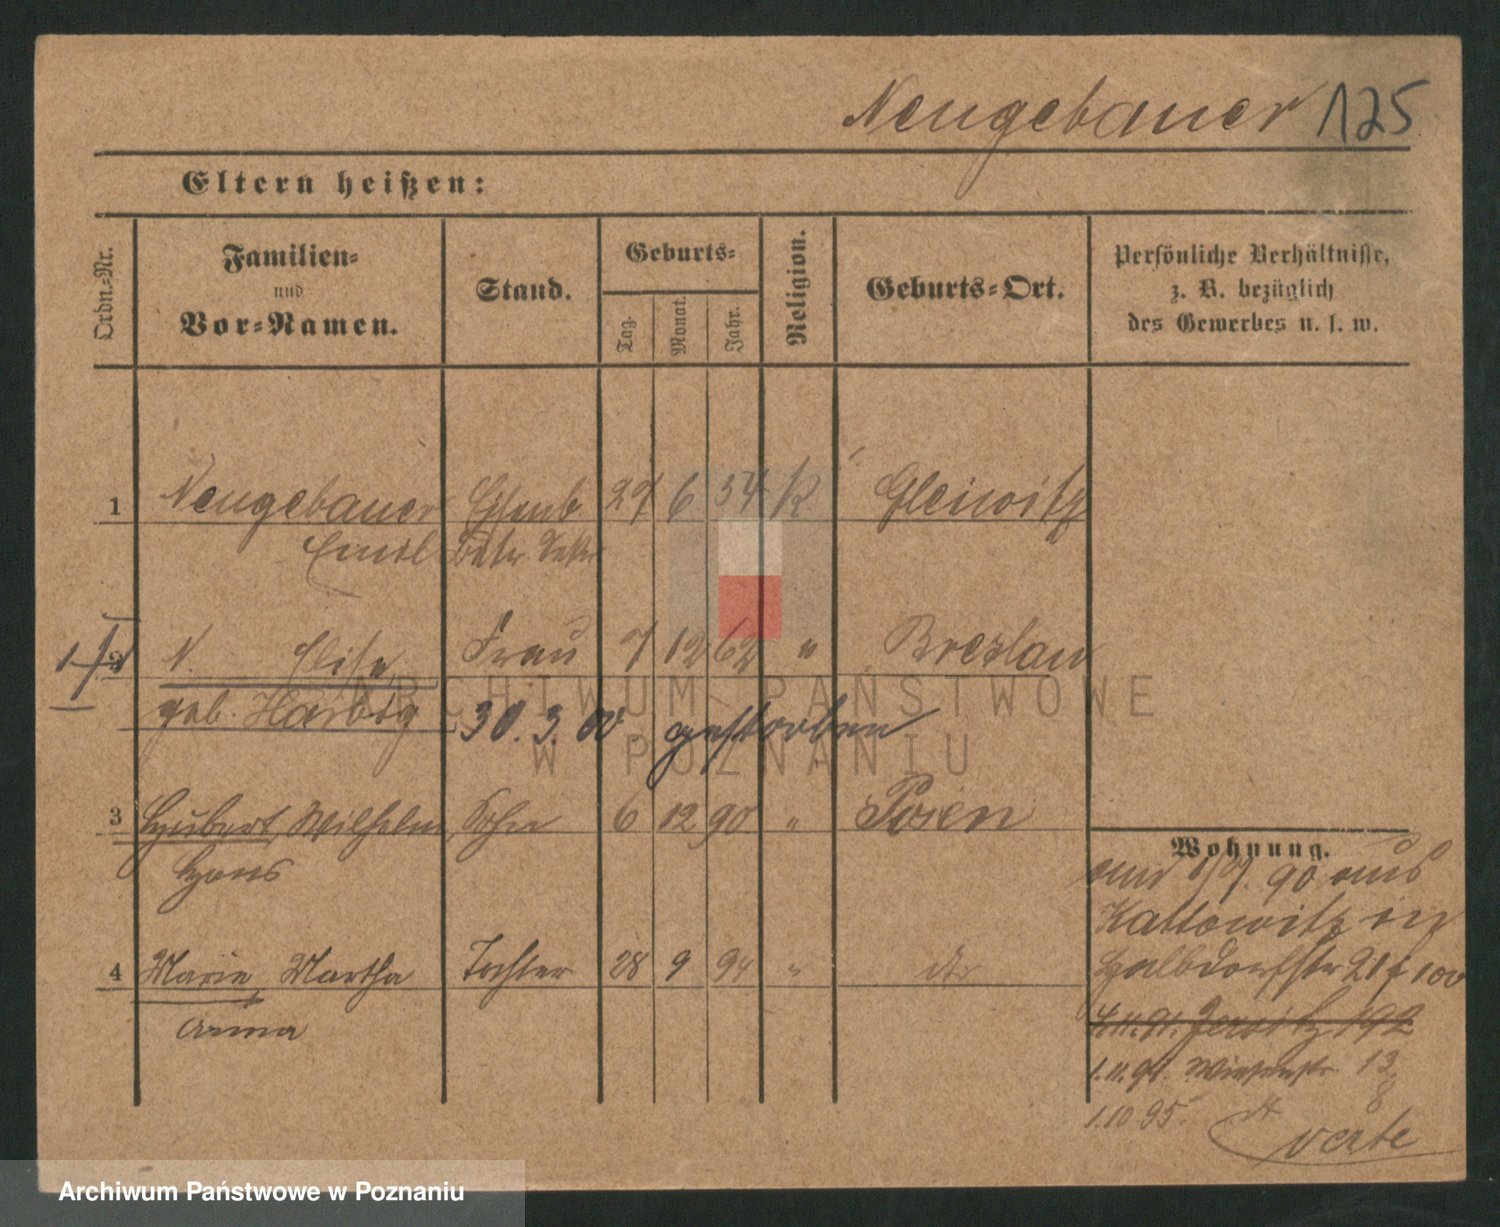 Neugebauer 125
Eltern heißen:
Ordn.-Nr.
Familien-
und
Vor-Namen.
Stand.
Geburts-
Tag.
Monat.
Jahr.
Religion.
Geburts-Ort.
Persönliche Verhältnisse,
z. B. bezüglich
des Gewerbes u. s. w.
1 Neugebauer Eisenb 27 6 54 K Gleiwitz
Emil Betr. Sekr
2 N. Elise Frau 7 12 62 " Breslau
geb. Harbig 30. 3. 00 gestorben
3 Hubert, Wilhelm Sohn 6 12 90 " Posen
Hans
4 Marie, Martha Tochter 28 9 94 " dto
Anna
Wohnung.
90 aus
Kattowitz in
Halbdorfstr 21
4.11.91. Jersitz 192
1.11.94. Wiesenstr. 13
8
1.10.95. dt
verte
ARCHIWUM PAŃSTWOWE
W POZNANIU
Archiwum Państwowe w Poznaniu